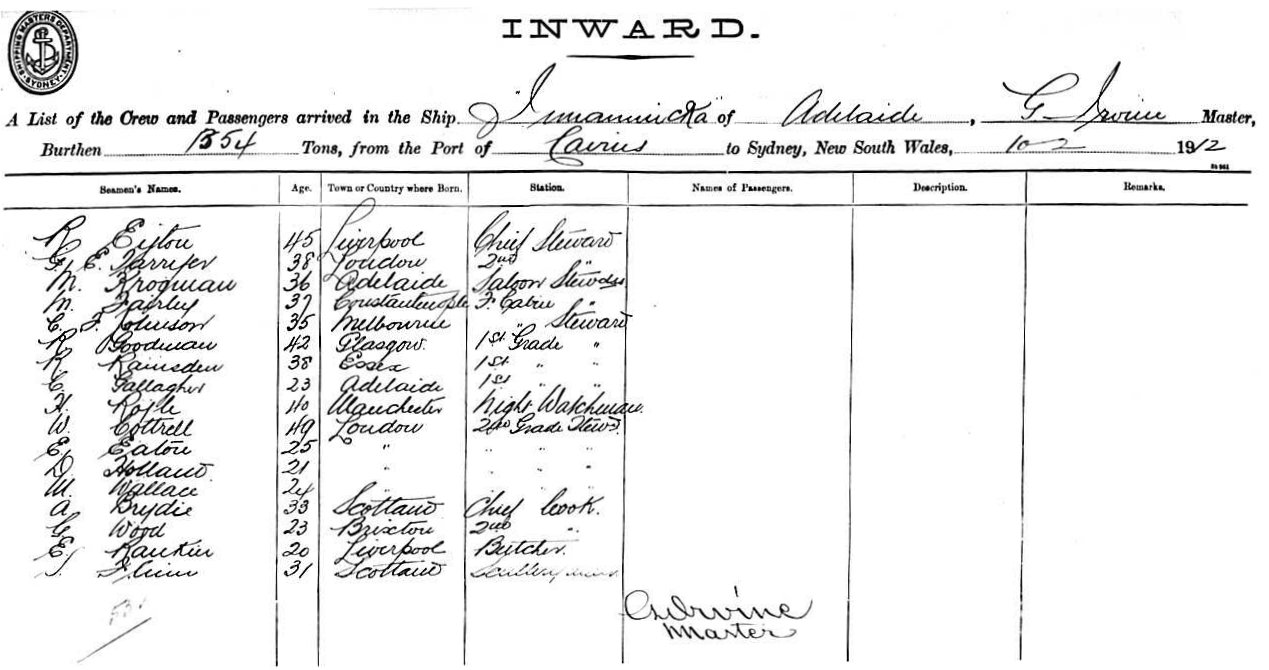 SHIPPING MASTERS DEPARTMENT SYDNEY
INWARD.
A List of the Crew and Passengers arrived in the Ship "Innamincka" of Adelaide, G Irvine Master,
Burthen 1354 Tons, from the Port of Cairns to Sydney, New South Wales, 10 2 1912
Seamen's Names. Age. Town or Country where Born. Station. Names of Passengers. Description. Remarks.
R Eiston 45 Liverpool Chief Steward
G. E. 38 London 2nd "
M. Krogman 36 Adelaide Saloon Stewdss
M. Fairley 37 Constantinople F. Cabin "
C. F. Johnson 35 Melbourne " Steward
R Goodman 42 Glasgow. 1st Grade "
R Ramsden 38 Essex 1st " "
C. Gallagher 23 Adelaide 1st " "
H. Royle 40 Manchester Night Watchman.
W. Cottrell 49 London 2nd Grade Stewd.
E. Eaton 25 " " " "
D. Holland 21 " " " "
M. Wallace 24 "
A Brydie 33 Scotland Chief Cook.
G Wood 23 Brixton 2nd "
E. Rankin 20 Liverpool Butcher.
31 Scotland
G Irvine
Master